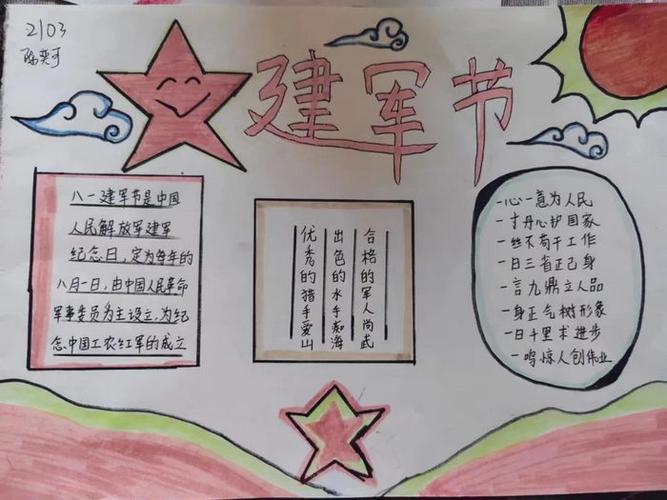 2103
陈奕可
建军节
八一建军节是中国
人民解放军建军
纪念日,定为每年的
八月一日,由中国人民革命
军事委员为主设立,为纪
念中国工农红军的成立
合格的军人尚武
出色的水手痴海
优秀的猎手爱山
一心一意为人民
一寸丹心护国家
一丝不苟干工作
一日三省正己身
一言九鼎立人品
一身正气树形象
一日千里求进步
一鸣惊人创伟业